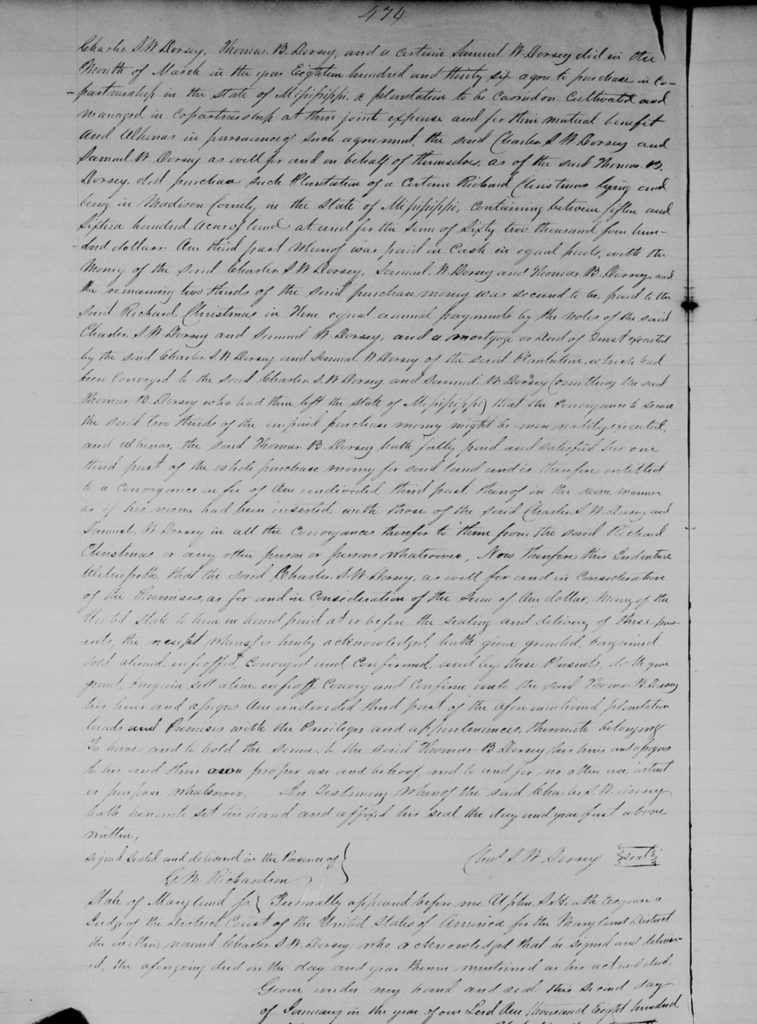 474
Charles S. W. Dorsey, Thomas. B. Dorsey, and a certain Samuel. W. Dorsey did in the
Month of March in the year Eighteen hundred and thirty six agree to purchase in Co-
-partnership in the State of Mississippi a plantation to be Carried on Cultivated and
managed in Copartnership at their joint expense and for their mutual benefit
And Whereas in pursuance of such agreement, the said Charles S. W. Dorsey and
Samuel W. Dorsey as well for and on behalf of themselves as of the said Thomas B.
Dorsey, did purchase such Plantation of a Certain Richard Christmas lying and
being in Madison County, in the State of Mississippi, Containing between fifteen and
Sixteen hundred Acres of land at and for the Sum of Sixty two thousand four hun-
-dred dollars One third part whereof was paid in Cash in equal parts, with the
Money of the said Charles S. W. Dorsey, Samuel. W. Dorsey and Thomas B. Dorsey, and
the remaining two thirds of the said purchase money was secured to be paid to the
Said Richard Christmas in three equal annual payments by the notes of the said
Charles S. W. Dorsey and Samuel W. Dorsey, and a mortgage or deed of Trust executed
by the said Charles S. W. Dorsey and Samuel W. Dorsey of the said Plantation, which had
been Conveyed to the said Charles S. W. Dorsey, and Samuel W. Dorsey (omitting the said
Thomas B. Dorsey who had then left the State of Mississippi) that the Conveyance to secure
the said two thirds of the unpaid purchase money might be more readily executed,
and Whereas, the said Thomas B. Dorsey hath fully paid and satisfied his one
third part of the whole purchase money for said land and is therefore entitled
to a Conveyance in fee of One undivided third part thereof in the same manner
as if his name had been inserted with those of the said Charles S. W. Dorsey and
Samuel. W. Dorsey in all the Conveyances therefor to them from the said Richard
Christmas or any other person or persons whatsoever, Now therefore this Indenture
Witnesseth that the said Charles S. W. Dorsey, as well for and in Consideration
of the Premises, as for and in Consideration of the Sum of One dollar, Money of the
United State to him in hand paid at or before the sealing and delivery of these pres-
ents, the receipt whereof is hereby acknowledged, hath given granted, bargained
sold aliened, enfeoffed, Conveyed and Confirmed, and by these Presents, doth give
grant, bargain, sell alien, enfeoff Convey and Confirm unto the said Thomas B. Dorsey
his heirs and assigns One undivided third part of the aforementioned plantation
lands and Premises with the Privileges and appurtenances, thereunto belonging
To have and to hold the same, to the said Thomas B Dorsey his heirs and assigns
to his and their own proper use and behoof, and to and for no other use intent
or purpose whatsoever, In Testimony whereof the said Charles S. W. Dorsey
hath hereunto set his hand and affixed his seal the day and year first above
written,
Signed Sealed and delivered in the Presence of } Chas S. W. Dorsey {seal}
G. W. Richardson
State of Maryland } Personally appeared before me a
Judge of the District Court of the United States of America for the Maryland District
the within named Charles S. W. Dorsey who acknowledged that he signed and deliver-
ed, the aforegoing deed on the day and year therein mentioned as his act and deed.
Given under my hand and seal this second day
of January in the year of our Lord One thousand Eight hundred